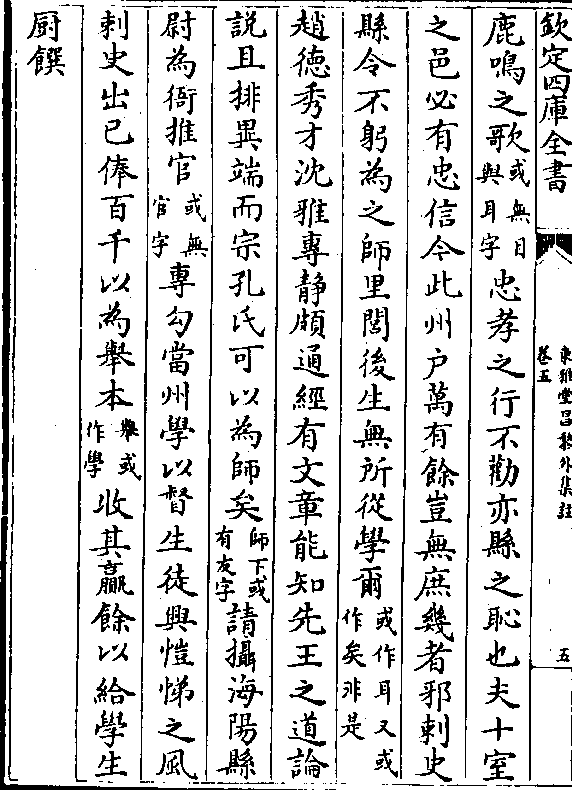 欽定四庫全書
東雅堂昌黎外集註
卷五
五
鹿鳴之歌或無目與耳字忠孝之行不勸亦縣之恥也夫十室
之邑必有忠信今此州户萬有餘豈無庶幾者邪刺史
縣令不躬為之師里閭後生無所從學爾或作耳又或作矣非是
趙德秀才沈雅專静頗通經有文章能知先王之道論
説且排異端而宗孔氏可以為師矣師下或有友字請攝海陽縣
尉為衙推官或無官字專勾當州學以督生徒興愷悌之風
刺史出已俸百千以為舉本舉或作學收其贏餘以給學生
厨饌